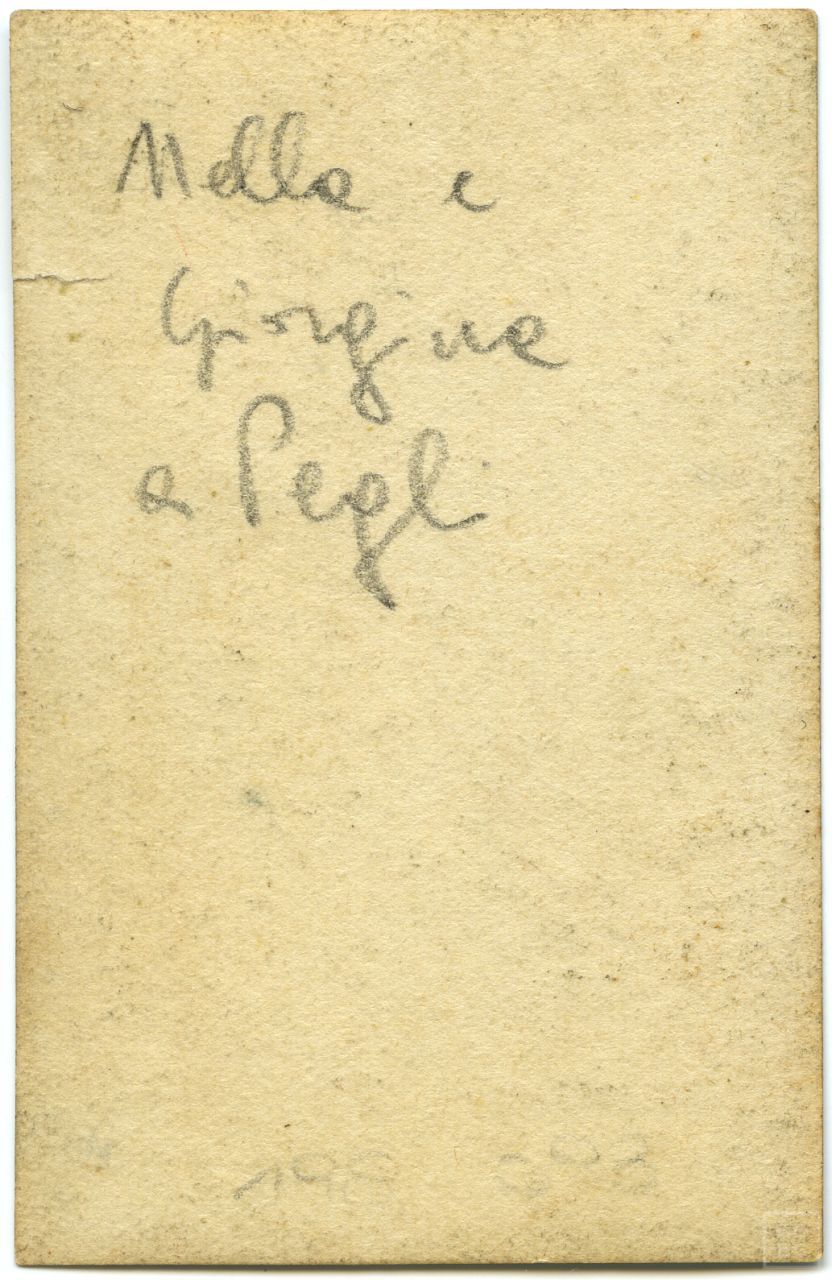 Mella e
Giorgina
a Pegli